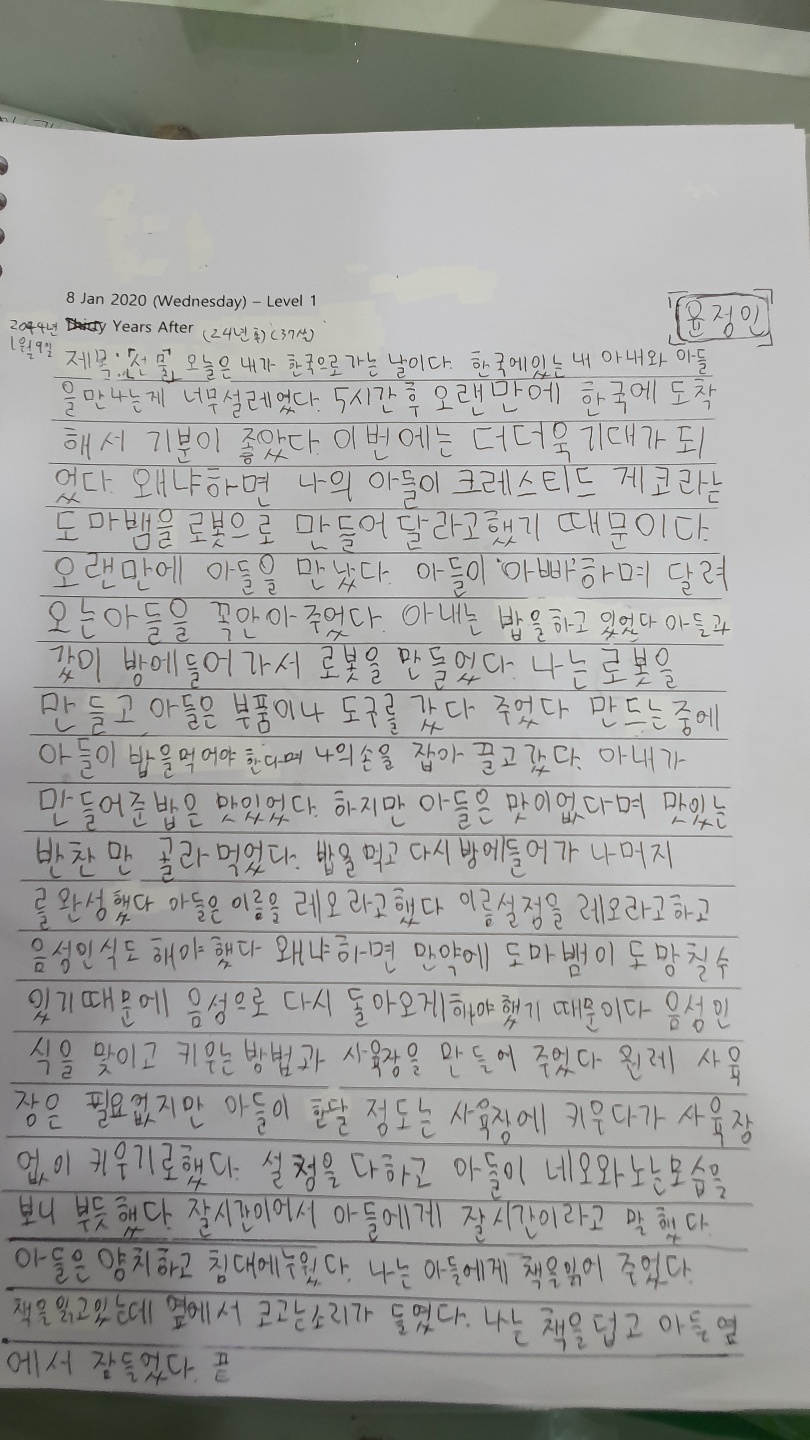 8 Jan 2020 (Wednesday) – Level 1
윤정인
2044년 Years After (24년후) (37살)
1월9일
제목:「선물」 오늘은 내가 한국으로 가는 날이다. 한국에있는 내 아내와 아들
을만나는게 너무설레었다. 5시간 후 오랜만에 한국에 도착
해서 기분이 좋았다. 이번에는 더더욱 기대가 되
었다. 왜냐하면 나의 아들이 크레스티드 게코라는
도마뱀을 로봇으로 만들어 달라고했기 때문이다.
오랜만에 아들을 만났다. 아들이 "아빠"하며 달려
오는아들을 꼭안아 주었다. 아내는 밥을하고 있었다 아들과
같이 방에들어가서 로봇을 만들었다. 나는 로봇을
만들고 아들은 부품이나 도구를 갔다 주었다 만드는중에
아들이 밥을먹어야 한다며 나의손을 잡아 끌고갔다. 아내가
만들어준밥은 맛있었다. 하지만 아들은 맛이없다며 맛있는
반찬만 골라먹었다. 밥을먹고 다시 방에들어가 나머지
를 완성했다 아들은 이름을 레오라고했다 이름설정을 레오라고하고
음성인식도 해야했다 왜냐하면 만약에 도마뱀이 도망칠수
있기때문에 음성으로 다시 돌아오게해야했기 때문이다 음성인
식을 맞이고 키우는방법과 사육장을 만들어 주었다 원레 사육
장은 필요없지만 아들이 한달 정도는 사육장에 키우다가 사육장
없이 키우기로했다. 설정을 다하고 아들이 레오와노는모습을
보니 부듯했다. 잘시간이어서 아들에게 잘시간이라고 말했다.
아들은 양치하고 침대에누웠다. 나는 아들에게 책을읽어 주었다.
책을읽고있는데 옆에서 코고는소리가 들렸다. 나는 책을덥고 아들 옆
에서 잠들었다. 끝